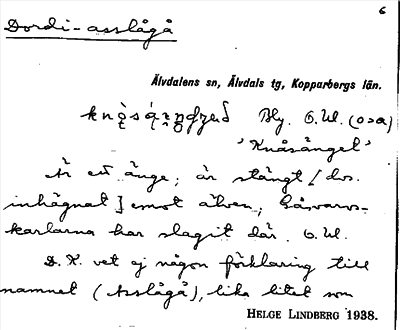 6
Dordi-asslågå
Älvdalens sn, Älvdals tg, Kopparbergs län.
Bly. O.W. (o>a)
'Knåsänget'
Är ett änge; är stängt [dvs.
inhägnat] emot älven;
karlarna har slagit där. O.W.
D.K. vet ej någon förklaring till
namnet (Asslågå), lika litet som
HELGE LINDBERG 1938.